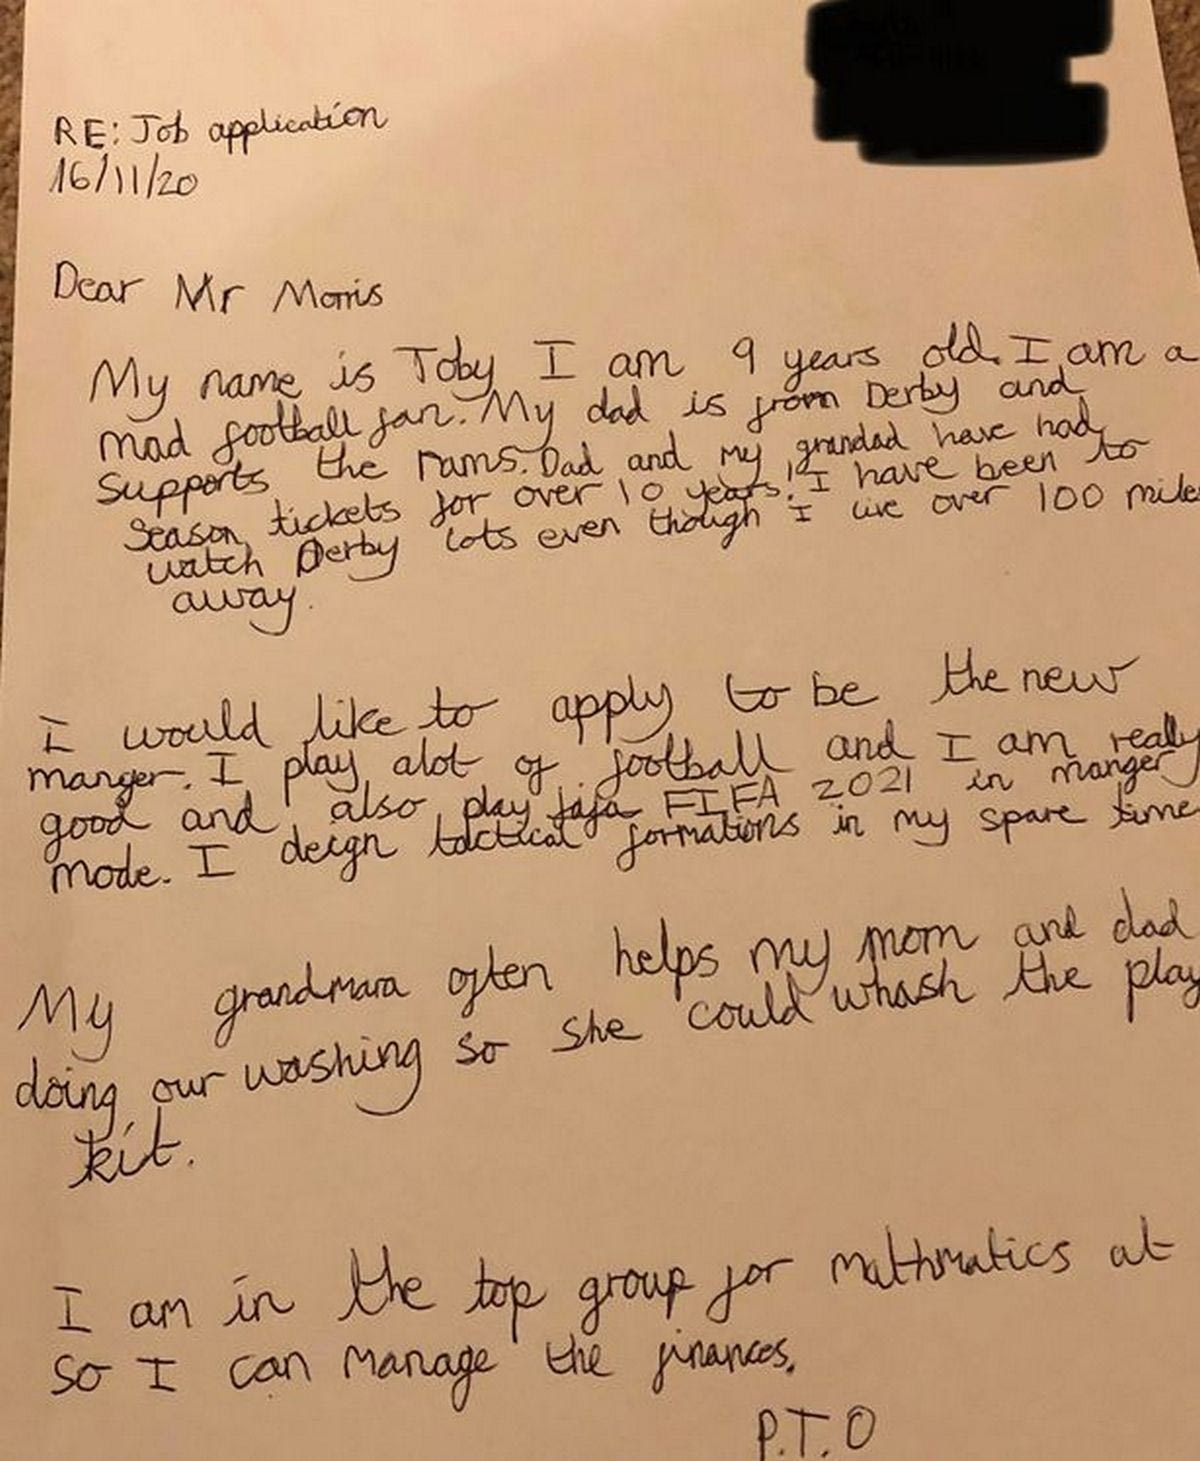 RE: Job application
16/11/20
Dear Mr Morris
My name is Toby I am 9 years old. I am a
mad football fan. My dad is from Derby and
supports the rams. Dad and my grandad have had
season tickets for over 10 years! I have been to
watch Derby lots even though I live over 100 miles
away.
I would like to apply to be the new
manger. I play alot of football and I am really
good and also play fafa FIFA 2021 in manger
mode. I deign tactical formations in my spare time
My grandmara often helps my mom and dad
doing our washing so she could whash the play
kit.
I am in the top group for mathmatics at
so I can manage the finances.
P.T.O